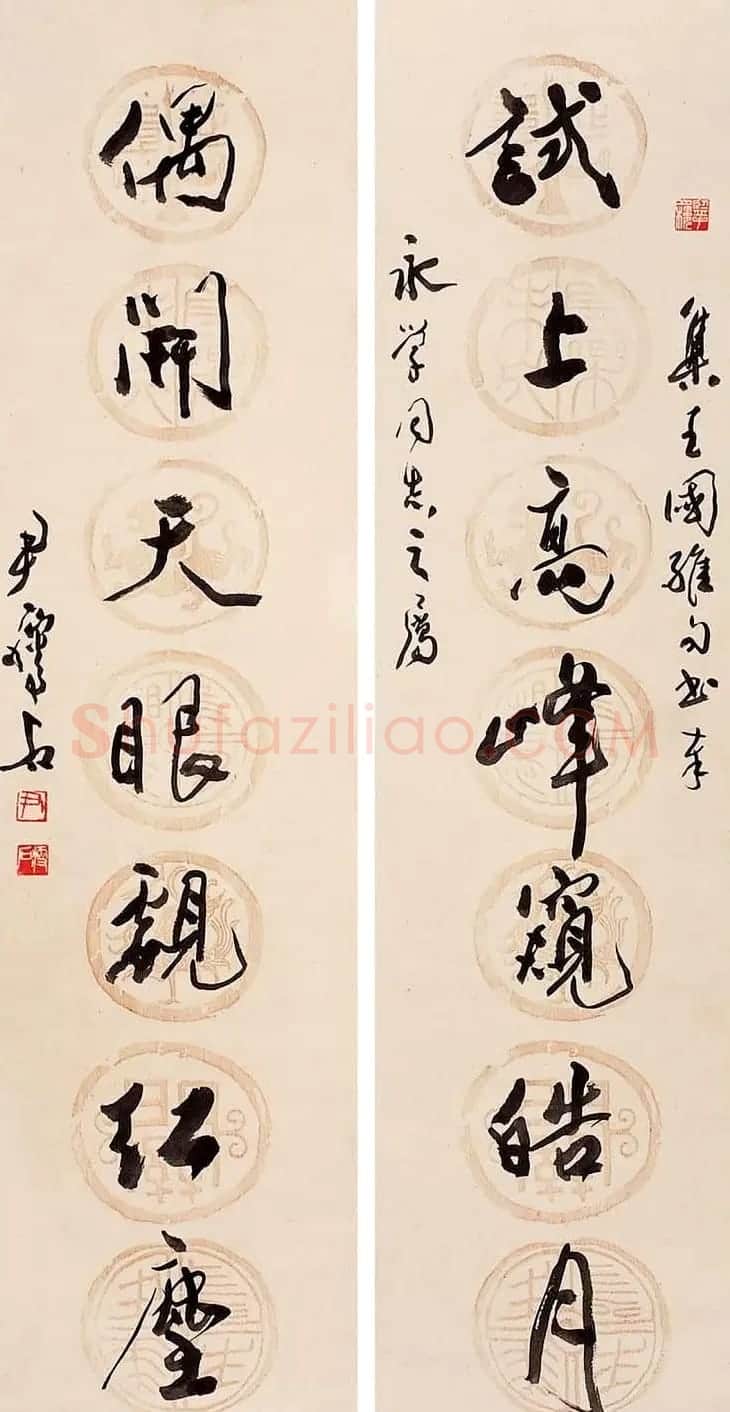 集王國維句書奉
試上高峰窺皓月
永学同志之属
偶開天眼覷紅塵
尹瘦石
尹
瘦石
Shufaziliao.com